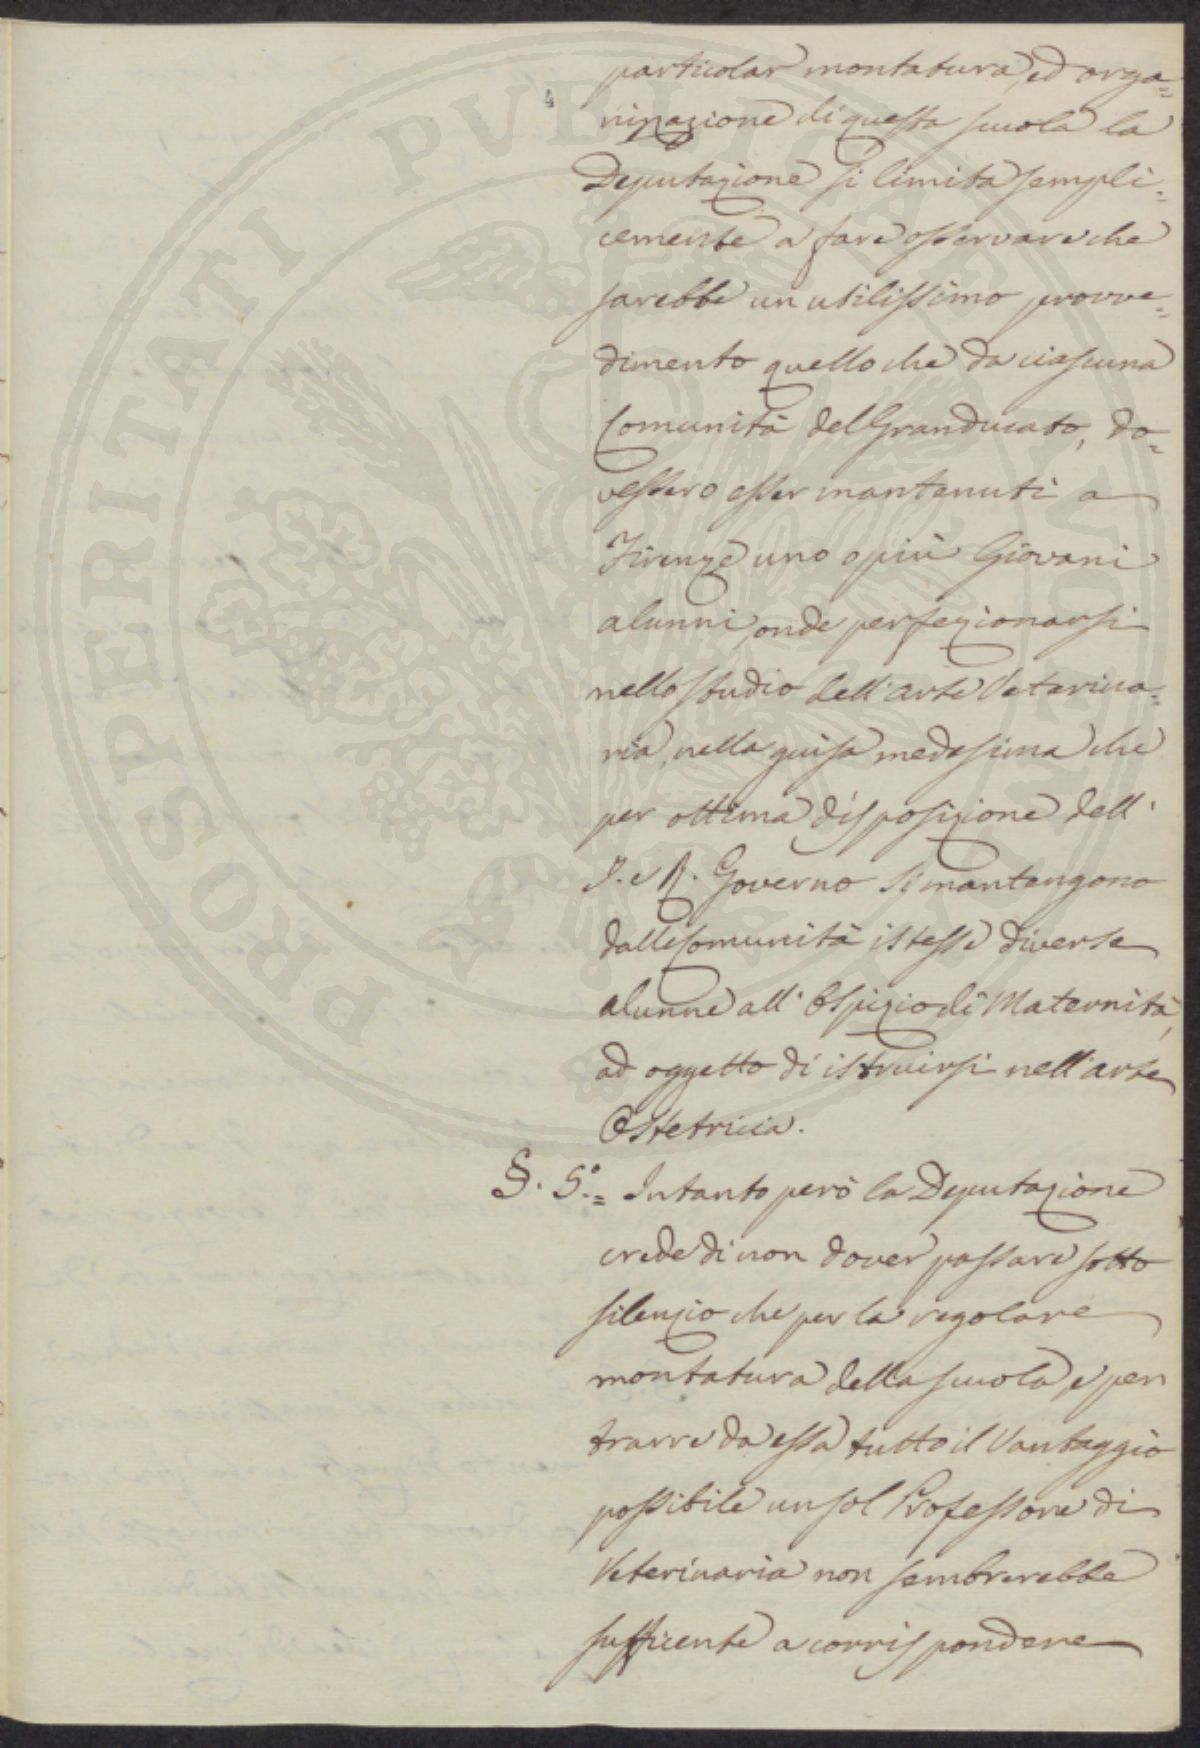 particolar montatura, ed orga=
nizzazione di questa scuola la
Deputazione si limita sempli=
cemente a fare osservare che
sarebbe un utilissimo provve=
dimento quello che da ciascuna
Comunità del Granducato, do=
vessero esser mantenuti a
Firenze uno o più Giovani
alunni, onde perfezionarsi
nello studio dell'arte Veterina=
ria, nella guisa medesima che
per ottima disposizione dell'
I. e R. Governo si mantengono
dalle Comunità istesse diverse
alunne all'Ospizio di Maternità,
ad oggetto di istruirsi nell'arte
Ostetricia.
§. 5.° = Intanto però la Deputazione
crede di non dover passare sotto
silenzio che per la regolare
montatura della scuola, e per
trarre da essa tutto il Vantaggio
possibile un sol Professore di
Veterinaria non sembrerebbe
sufficente a corrispondere
PROSPERITATI PVBLICAE AVGENDAE